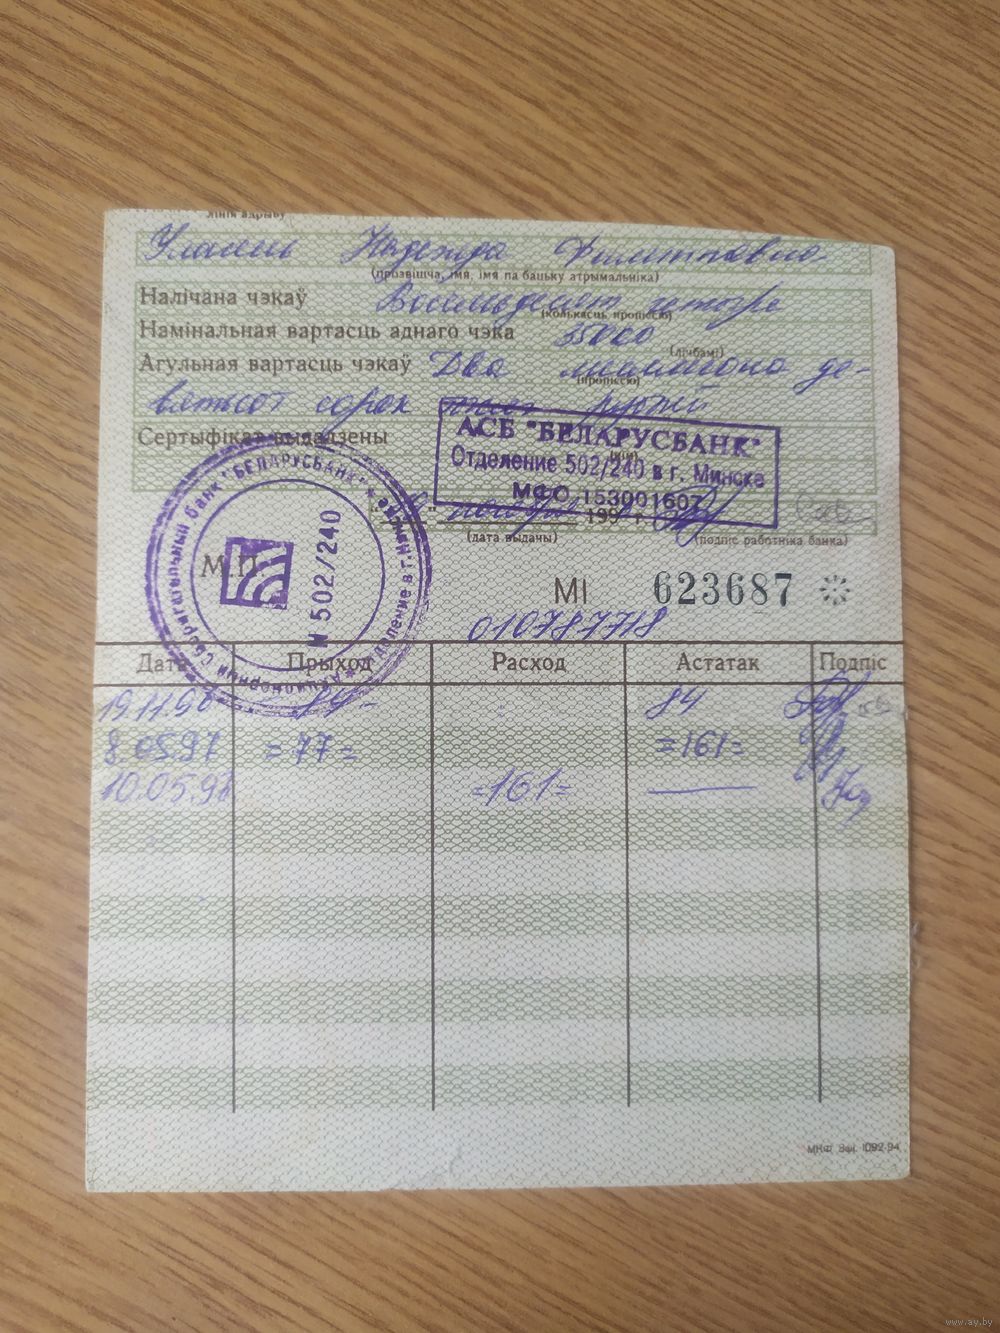 лінія адрыву
Надежда
(прозвішча, імя, імя па бацьку атрымальніка)
Налічана чэкаў Восемьдесят четыре
(колькасць прописсю)
Намінальная вартасць аднаго чэка 35000
(лічбамі)
Агульная вартасць чэкаў Два миллиона де-
(прописсю)
вятьсот сорок тысяч рублей
Сертыфікат выдадзены
АСБ "БЕЛАРУСБАНК"
Отделение 502/240 в г. Минске
МФО 153001607
199 г.
(дата выдачы) (подпіс работніка банка)
М.П.
Акционерный Сберегательный банк "БЕЛАРУСБАНК" * Отделение в г. Минске *
N 502/240
МІ 623687
010787718
Дата Прыход Расход Астатак Подпіс
19.11.96 - 84 - 84
8.05.97 = 77 = = 161 =
10.05.97 = 161 = —
МКФ Зак. 1092-94
www.ay.by